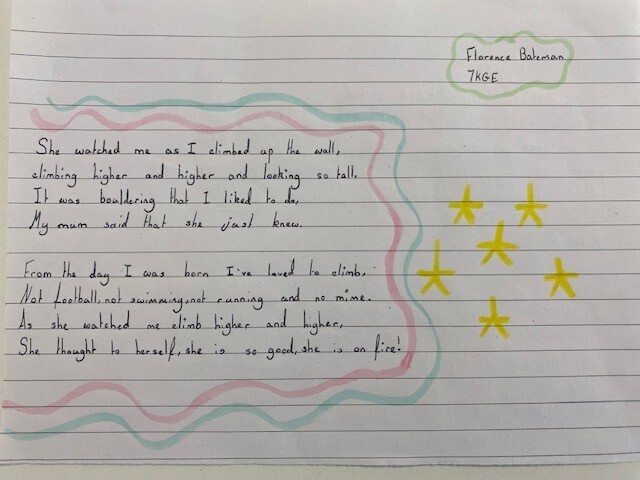 Florence Bateman
7KGE
She watched me as I climbed up the wall,
climbing higher and higher and looking so tall.
It was bouldering that I liked to do,
My mum said that she just knew.
From the day I was born I've loved to climb,
Not football, not swimming, not running and no mime.
As she watched me climb higher and higher,
She thought to herself, she is so good, she is on fire!